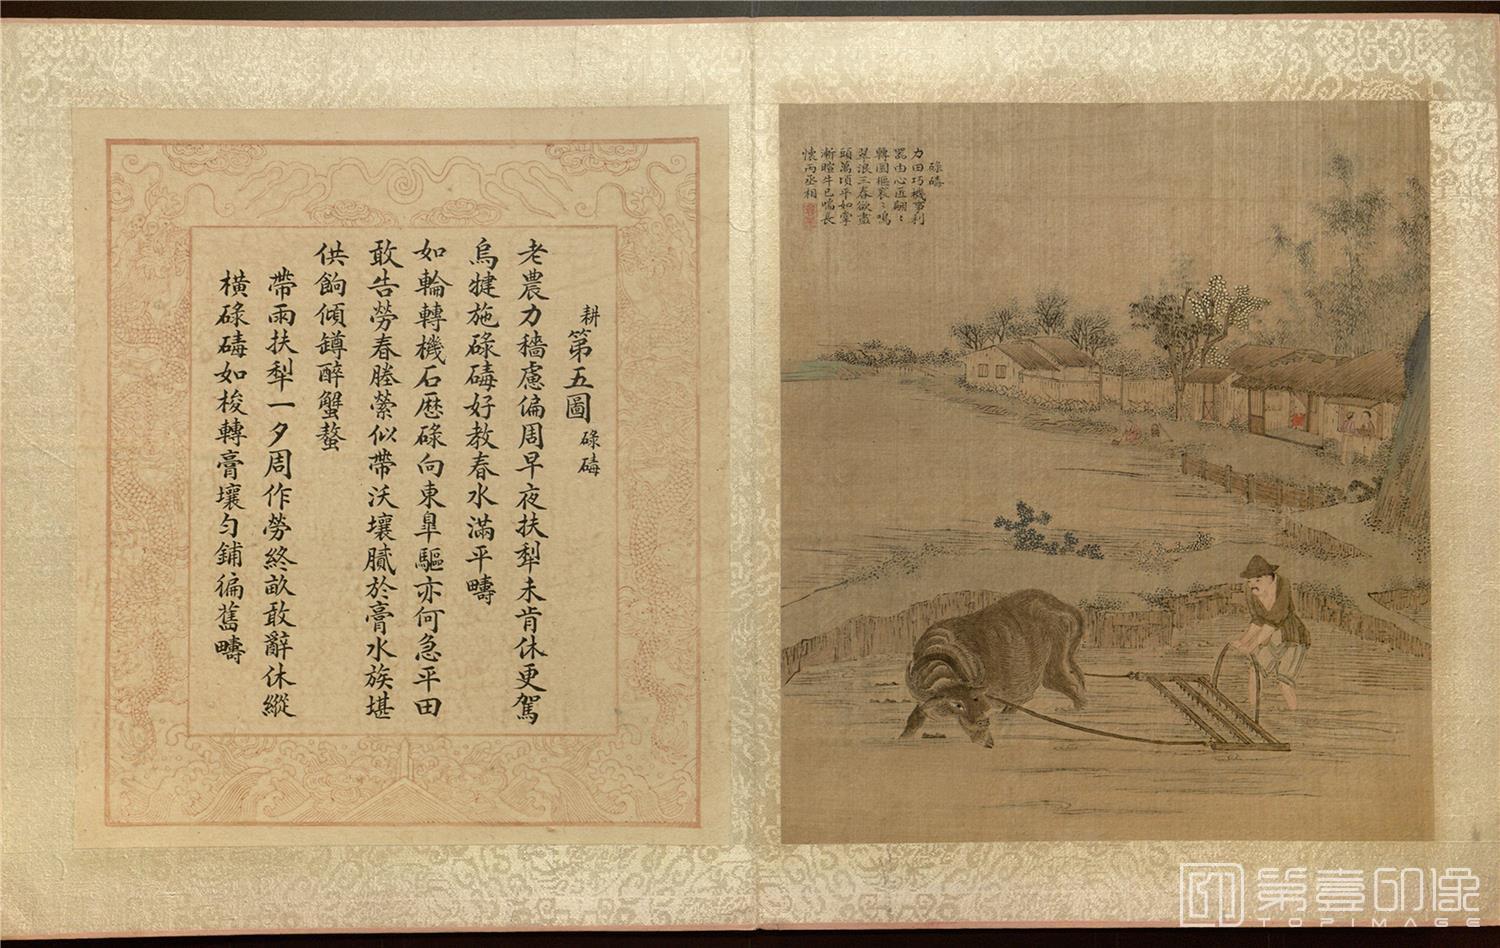 碌碡
力田巧機事利
器由心匠翩〻
轉圜樞袞〻鳴
翠浪三春欲盡
頭萬頃平如掌
漸暄牛已喘長
懷丙丞相
耕第五圖碌碡
老農力穡慮偏周早夜扶犁未肯休更駕
烏犍施碌碡好教春水滿平疇
如輪轉機石歷碌向東臯驅亦何急平田
敢告勞春塍縈似帶沃壤膩於膏水族堪
供餉傾罇醉蟹螯
帶雨扶犁一夕周作勞終畝敢辭休縱
橫碌碡如梭轉膏壤勻鋪徧舊疇
第壹印像
TOPIMAGE